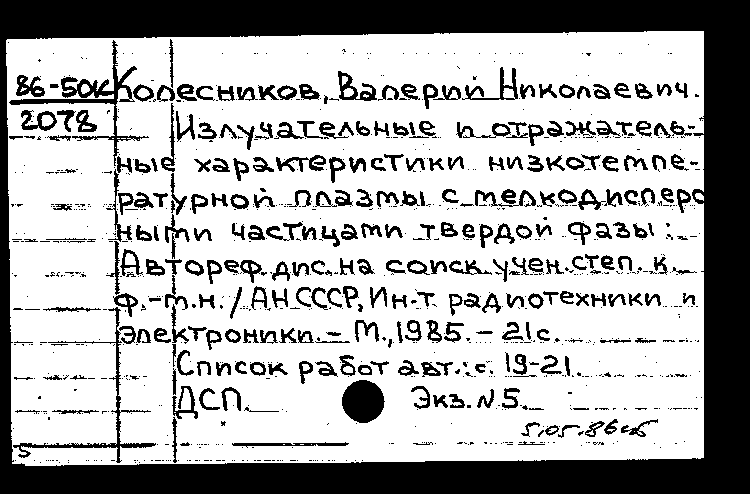 86-50к Колесников, Валерий Николаевич.
2078
Излучательные и отражатель-
ные характеристики низкотемпе-
ратурной плазмы с мелкодисперс
ными частицами твердой фазы:
Автореф. дис. на соиск. учен. степ. к.
ф.-м.н. / АН СССР, Ин-т радиотехники и
электроники. - М., 1985. - 21 с.
Список работ авт.: с. 19-21.
ДСП. Экз. N 5.
5.05.86
5